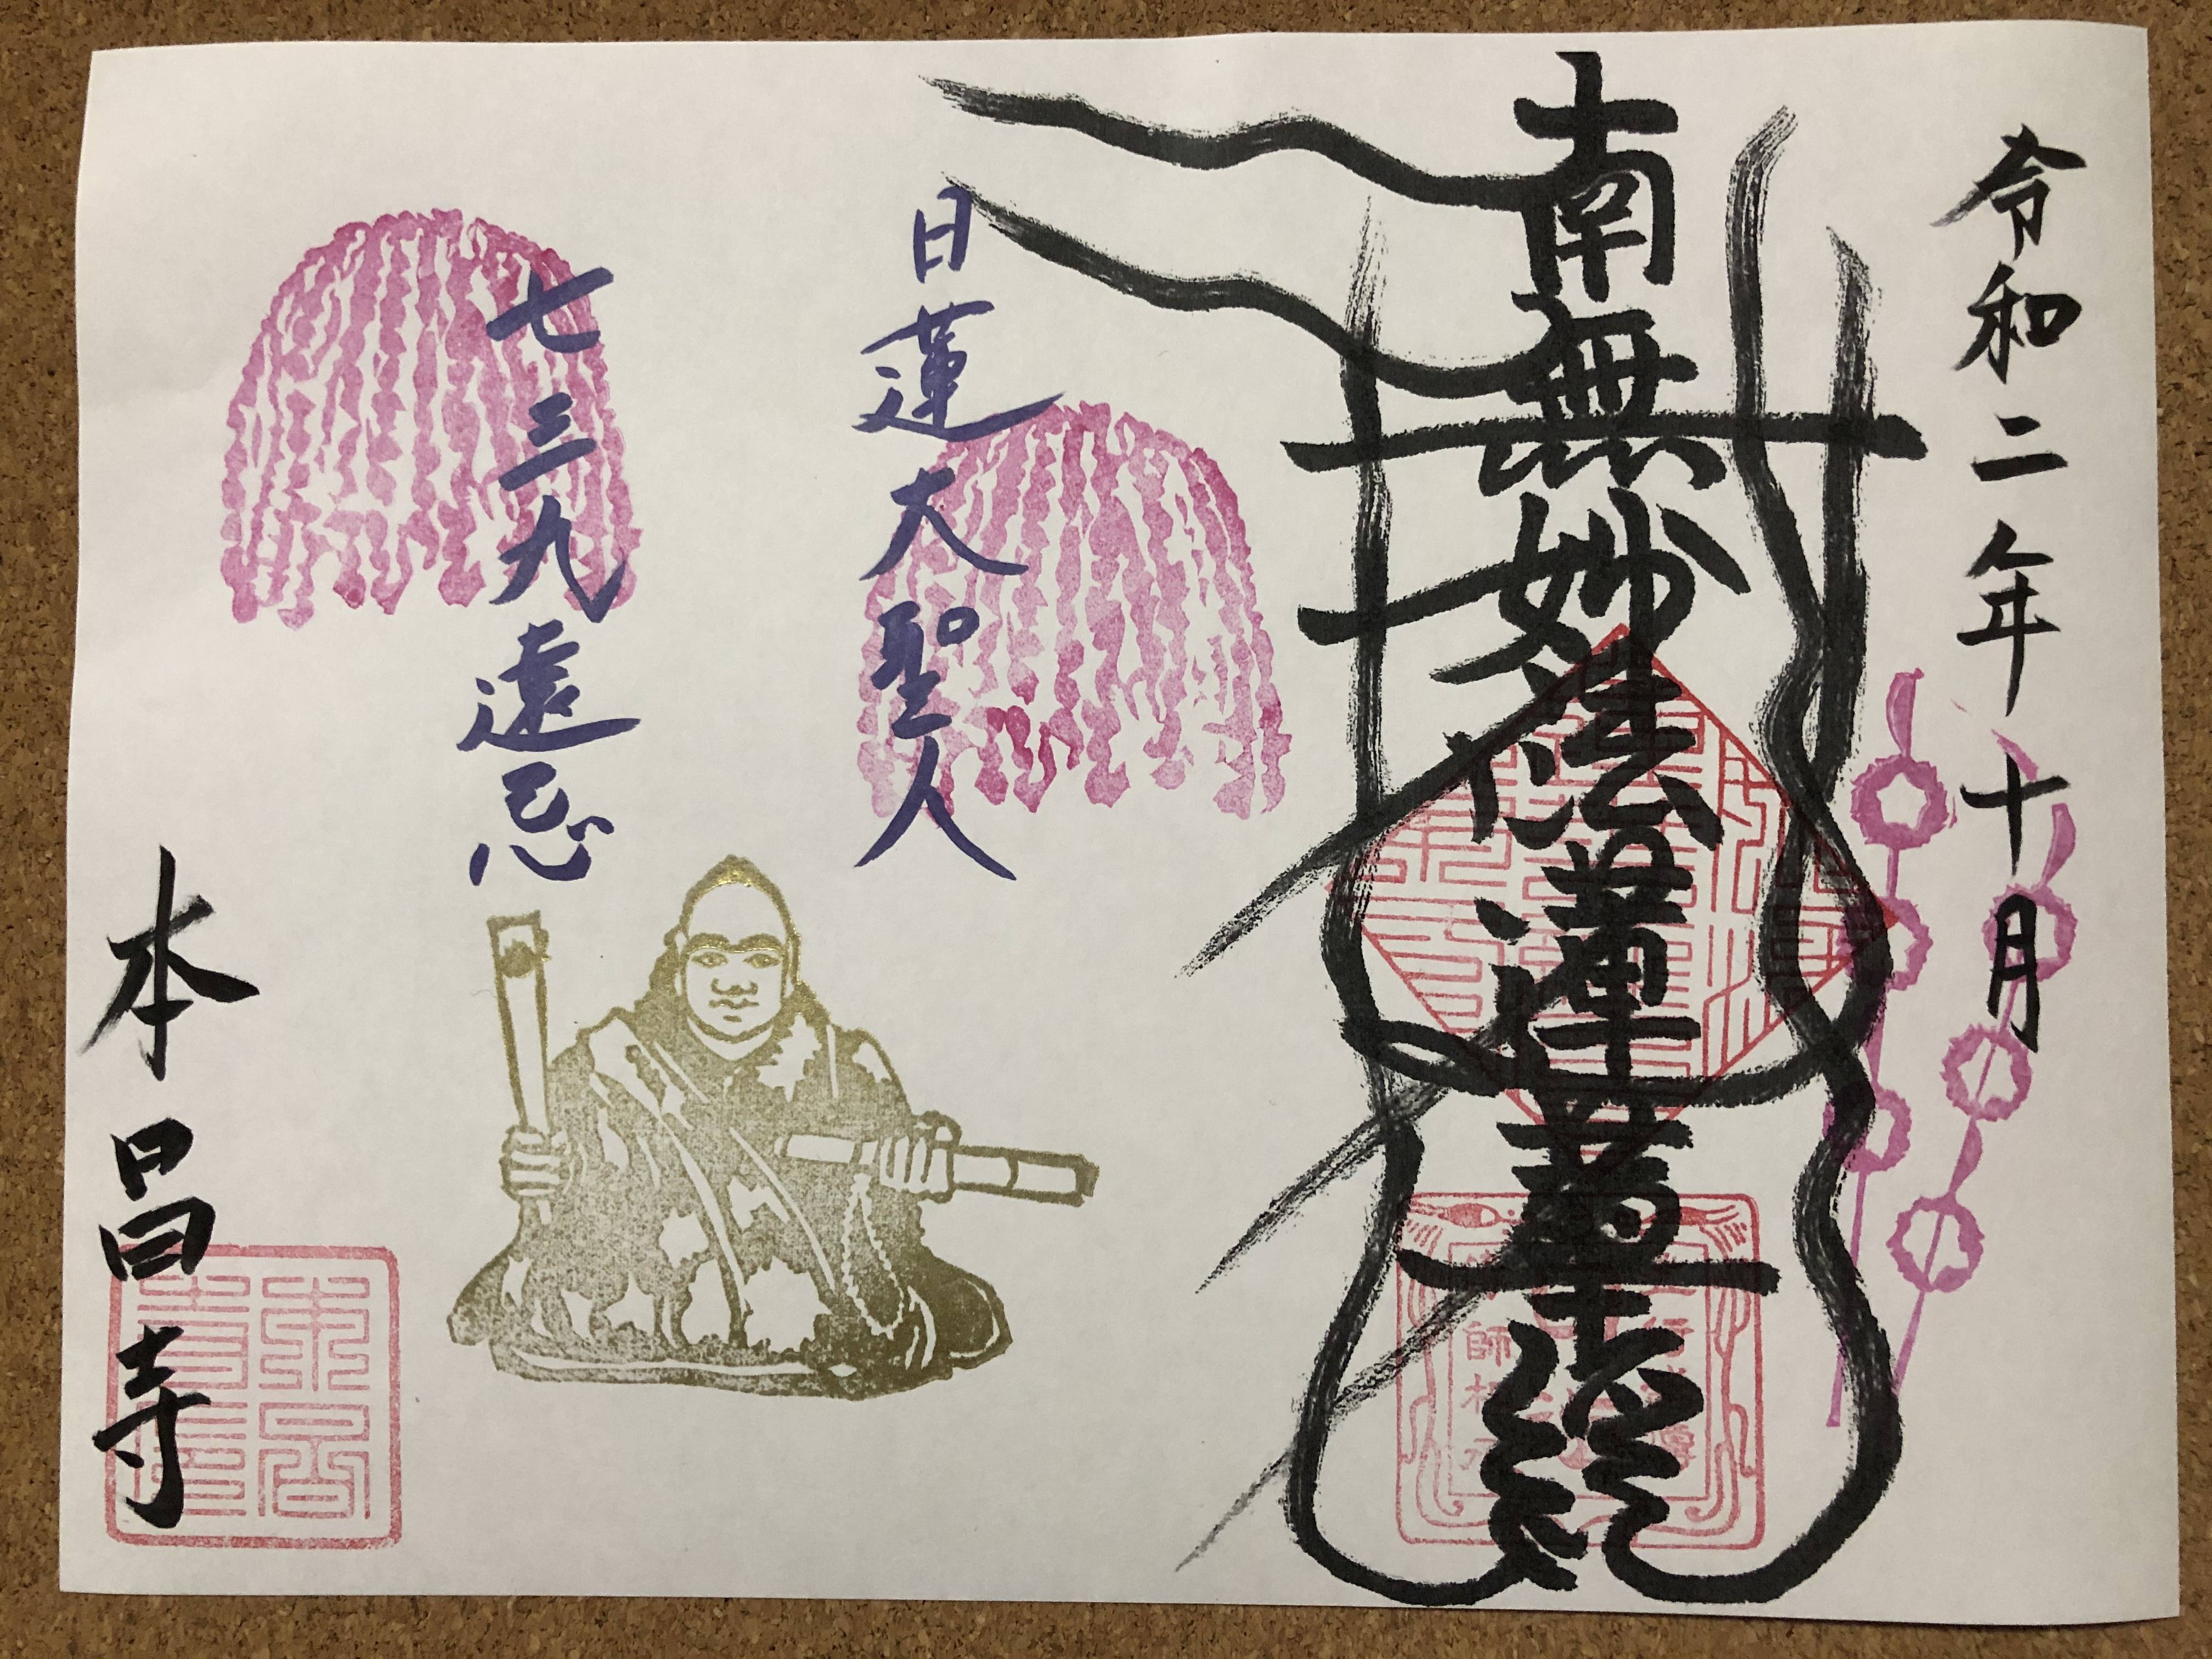 令和二年十月
南無妙法蓮華経
日蓮大聖人
七三九遠忌
本昌寺